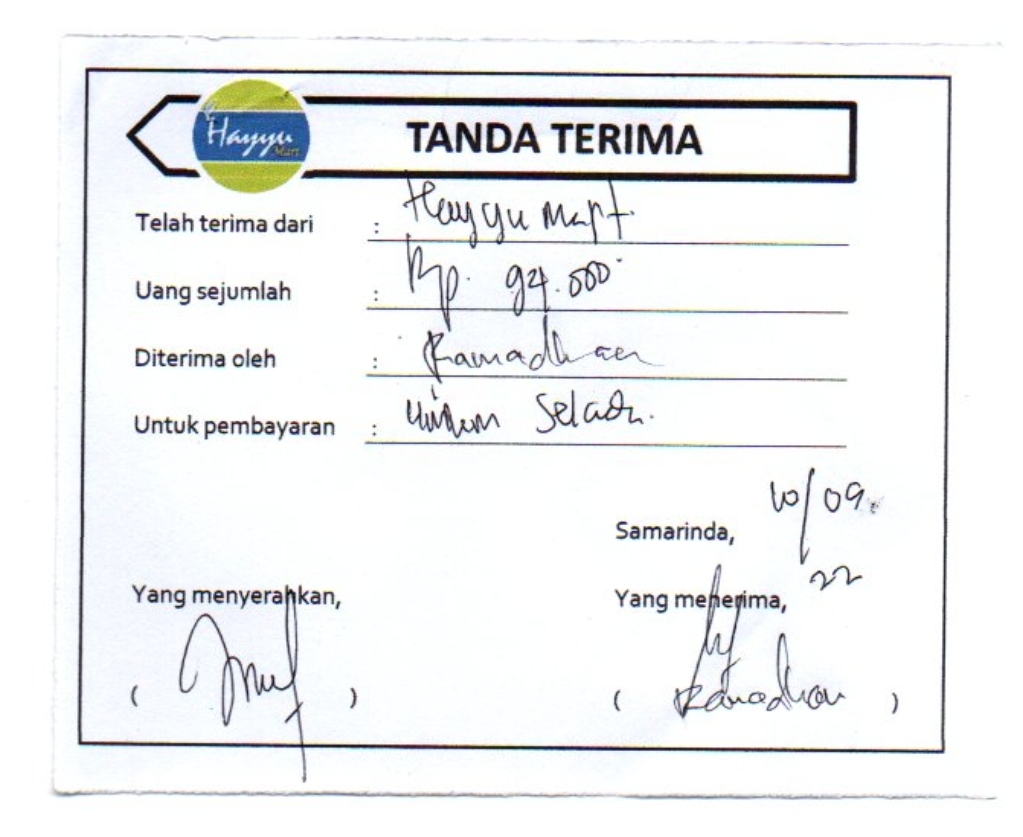 Hayyu
Mart
TANDA TERIMA
Telah terima dari : Hayyu Mart.
Uang sejumlah : Rp. 94.000
Diterima oleh : Ramadhan
Untuk pembayaran : Selada.
10/09
Samarinda,
22
Yang menyerahkan, Yang menerima,
( ) ( Ramadhan )